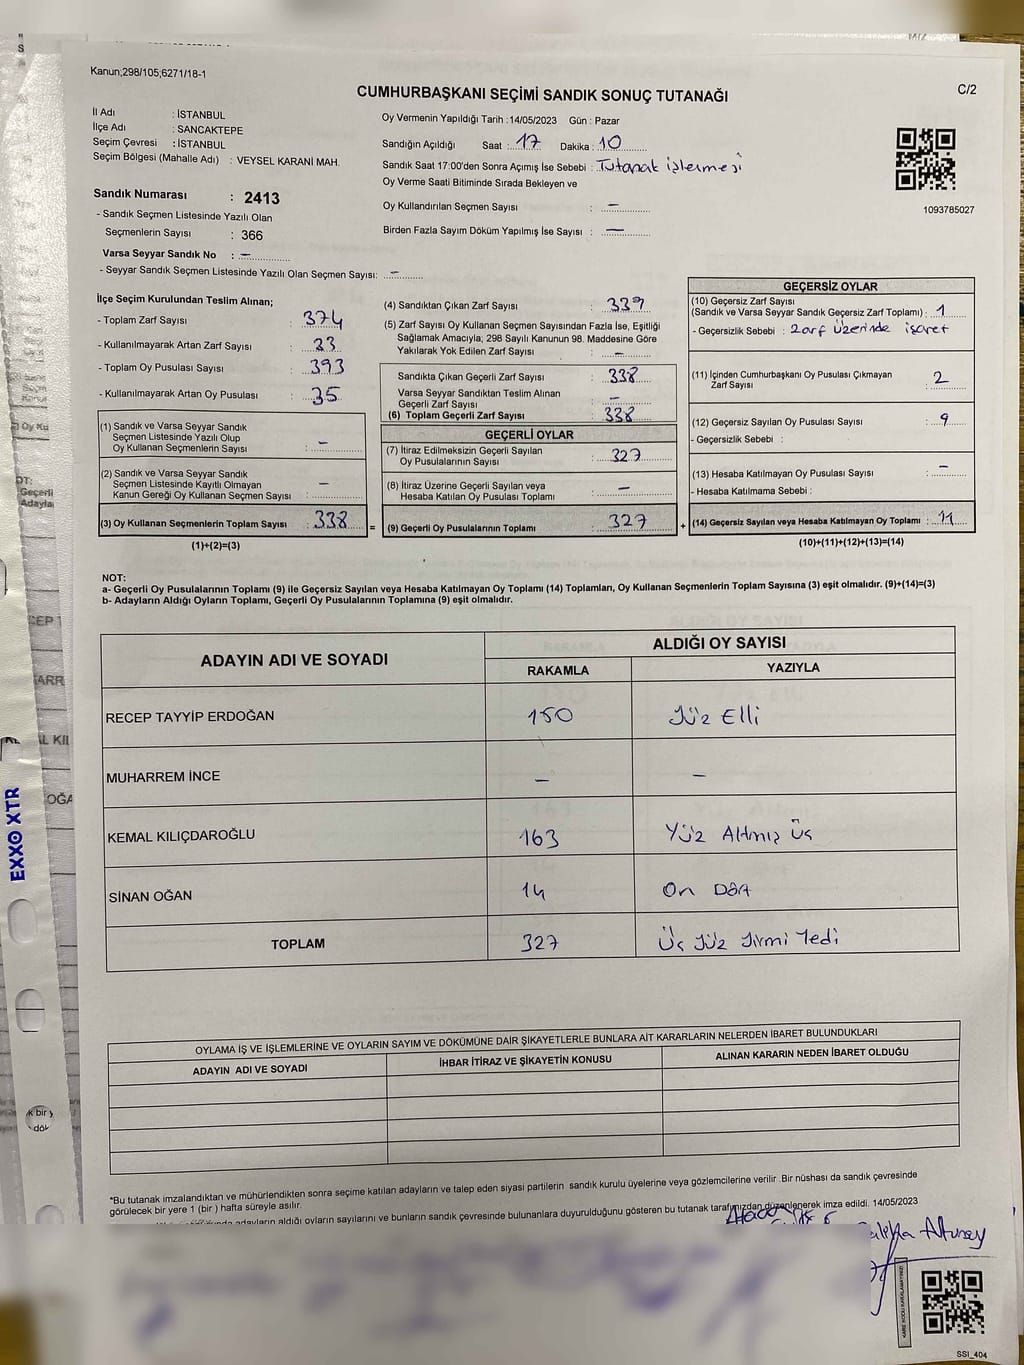 Kanun;298/105;6271/18-1
C/2
CUMHURBAŞKANI SEÇİMİ SANDIK SONUÇ TUTANAĞI
İl Adı : İSTANBUL
İlçe Adı : SANCAKTEPE
Seçim Çevresi : İSTANBUL
Seçim Bölgesi (Mahalle Adı) : VEYSEL KARANİ MAH.
Oy Vermenin Yapıldığı Tarih :14/05/2023 Gün : Pazar
Sandığın Açıldığı Saat : 17 Dakika : 10
Sandık Saat 17:00'den Sonra Açımış İse Sebebi : Tutanak işlemesi
Oy Verme Saati Bitiminde Sırada Bekleyen ve
Oy Kullandırılan Seçmen Sayısı : —
Birden Fazla Sayım Döküm Yapılmış İse Sayısı : —
1093785027
Sandık Numarası : 2413
- Sandık Seçmen Listesinde Yazılı Olan
Seçmenlerin Sayısı : 366
Varsa Seyyar Sandık No : —
- Seyyar Sandık Seçmen Listesinde Yazılı Olan Seçmen Sayısı: —
İlçe Seçim Kurulundan Teslim Alınan;
- Toplam Zarf Sayısı : 374
- Kullanılmayarak Artan Zarf Sayısı : 33
- Toplam Oy Pusulası Sayısı : 393
- Kullanılmayarak Artan Oy Pusulası : 35
(1) Sandık ve Varsa Seyyar Sandık
Seçmen Listesinde Yazılı Olup
Oy Kullanan Seçmenlerin Sayısı : —
(2) Sandık ve Varsa Seyyar Sandık
Seçmen Listesinde Kayıtlı Olmayan
Kanun Gereği Oy Kullanan Seçmen Sayısı : —
(3) Oy Kullanan Seçmenlerin Toplam Sayısı : 338 =
(1)+(2)=(3)
(4) Sandıktan Çıkan Zarf Sayısı : 339
(5) Zarf Sayısı Oy Kullanan Seçmen Sayısından Fazla İse, Eşitliği
Sağlamak Amacıyla; 298 Sayılı Kanunun 98. Maddesine Göre
Yakılarak Yok Edilen Zarf Sayısı : —
Sandıkta Çıkan Geçerli Zarf Sayısı : 338
Varsa Seyyar Sandıktan Teslim Alınan
Geçerli Zarf Sayısı : —
(6) Toplam Geçerli Zarf Sayısı : 338
GEÇERLİ OYLAR
(7) İtiraz Edilmeksizin Geçerli Sayılan
Oy Pusulalarının Sayısı : 327
(8) İtiraz Üzerine Geçerli Sayılan veya
Hesaba Katılan Oy Pusulası Toplamı : —
(9) Geçerli Oy Pusulalarının Toplamı : 327 +
GEÇERSİZ OYLAR
(10) Geçersiz Zarf Sayısı
(Sandık ve Varsa Seyyar Sandık Geçersiz Zarf Toplamı) : 1
- Geçersizlik Sebebi : Zarf Üzerinde işaret
(11) İçinden Cumhurbaşkanı Oy Pusulası Çıkmayan
Zarf Sayısı : 2
(12) Geçersiz Sayılan Oy Pusulası Sayısı : 9
- Geçersizlik Sebebi :
(13) Hesaba Katılmayan Oy Pusulası Sayısı : —
- Hesaba Katılmama Sebebi :
(14) Geçersiz Sayılan veya Hesaba Katılmayan Oy Toplamı : 11
(10)+(11)+(12)+(13)=(14)
NOT:
a- Geçerli Oy Pusulalarının Toplamı (9) ile Geçersiz Sayılan veya Hesaba Katılmayan Oy Toplamı (14) Toplamları, Oy Kullanan Seçmenlerin Toplam Sayısına (3) eşit olmalıdır. (9)+(14)=(3)
b- Adayların Aldığı Oyların Toplamı, Geçerli Oy Pusulalarının Toplamına (9) eşit olmalıdır.
ADAYIN ADI VE SOYADI
ALDIĞI OY SAYISI
RAKAMLA YAZIYLA
RECEP TAYYİP ERDOĞAN 150 Yüz Elli
MUHARREM İNCE — —
KEMAL KILIÇDAROĞLU 163 Yüz Altmış Üç
SİNAN OĞAN 14 On Dört
TOPLAM 327 Üç Yüz Yirmi Yedi
OYLAMA İŞ VE İŞLEMLERİNE VE OYLARIN SAYIM VE DÖKÜMÜNE DAİR ŞİKAYETLERLE BUNLARA AİT KARARLARIN NELERDEN İBARET BULUNDUKLARI
ADAYIN ADI VE SOYADI İHBAR İTİRAZ VE ŞİKAYETİN KONUSU ALINAN KARARIN NEDEN İBARET OLDUĞU
*Bu tutanak imzalandıktan ve mühürlendikten sonra seçime katılan adayların ve talep eden siyasi partilerin sandık kurulu üyelerine veya gözlemcilerine verilir .Bir nüshası da sandık çevresinde
görülecek bir yere 1 (bir ) hafta süreyle asılır.
adayların aldığı oyların sayılarını ve bunların sandık çevresinde bulunanlara duyurulduğunu gösteren bu tutanak tarafımızdan düzenlenerek imza edildi. 14/05/2023
EXXO XTR
SSI_404